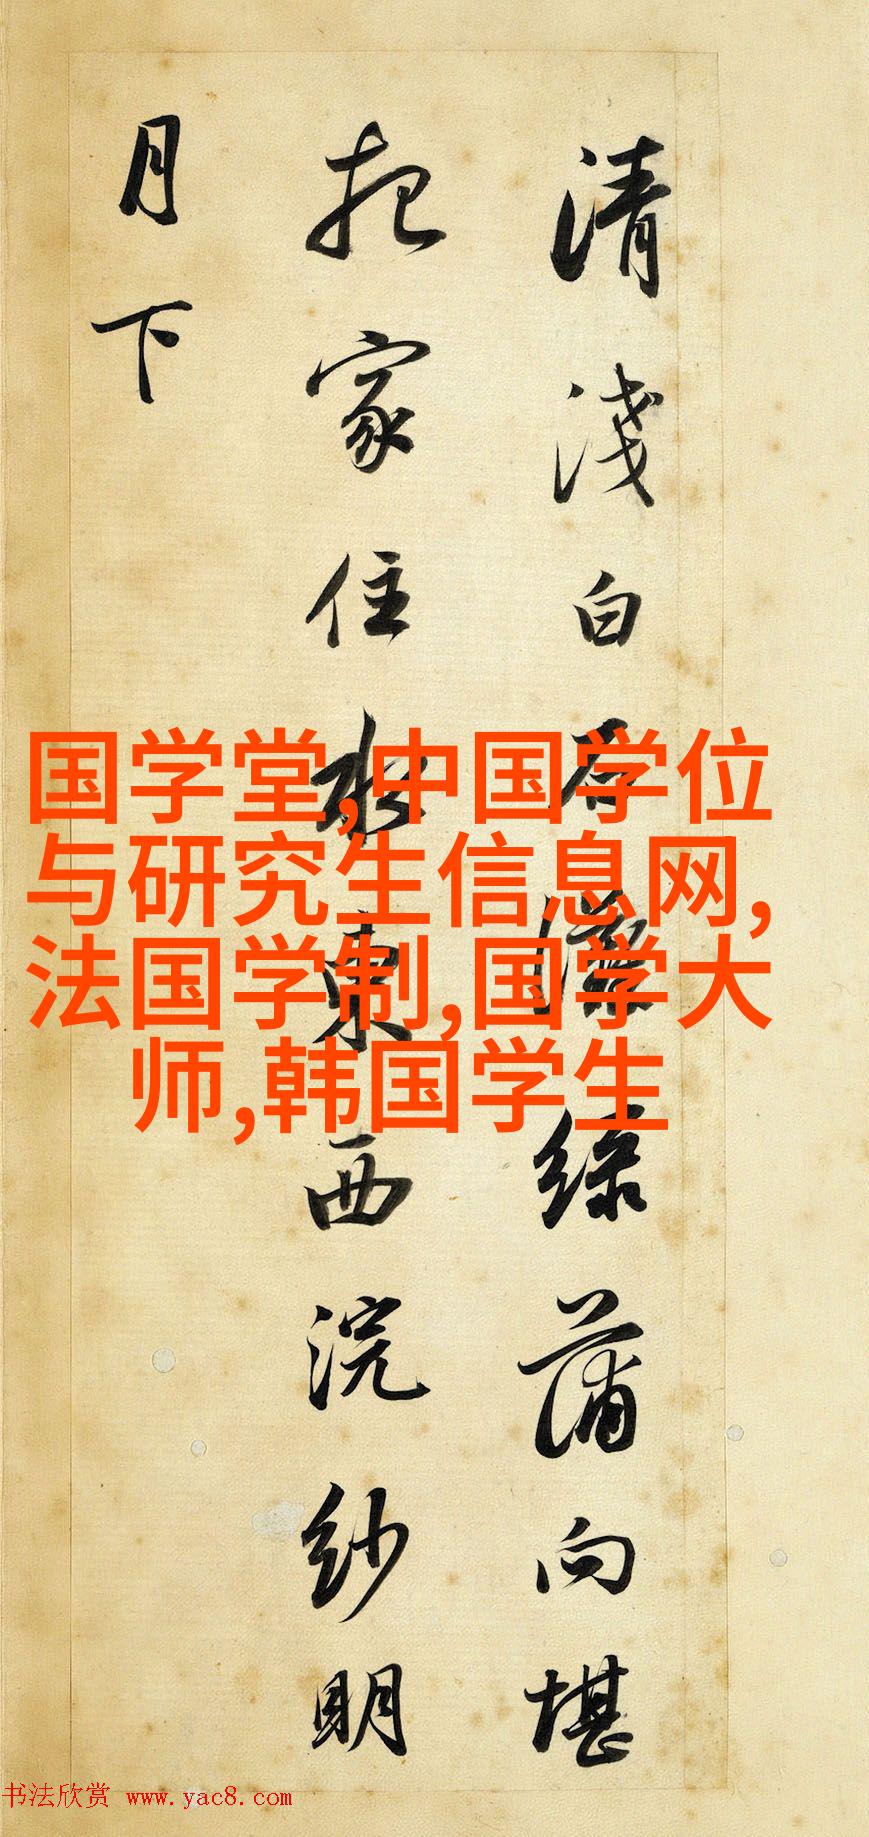 清淺白石灘綠蒲向堪
把家住水東西浣紗明
月下
国学堂,中国学位
与研究生信息网,
法国学制,国学大
师,韩国学生
书法欣赏 www.yac8.com